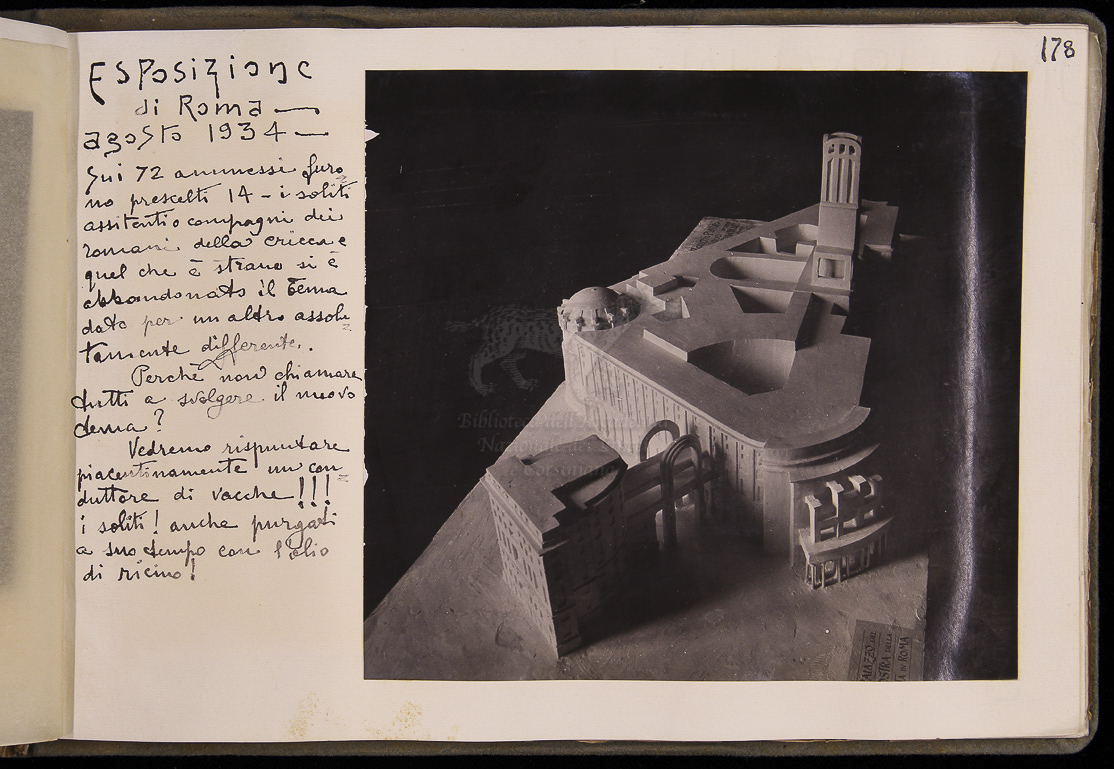 178
Esposizione
di Roma —
agosto 1934 —
Sui 72 ammessi furo
no prescelti 14 - i soliti
assitenti o compagni dei
romani della cricca e
quel che è strano si è
abbandonato il tema
dato per un altro assolu
tamente differente.
Perchè non chiamare
tutti a svolgere il nuovo
tema?
Vedremo rispuntare
piacentinamente un con
duttore di vacche!!!
i soliti! anche purgati
a suo tempo con l'olio
di ricino!
Biblioteca dell'
Na
Corsiniana
ALAZZO DEL
OSTRA DELLA
TA IN ROMA